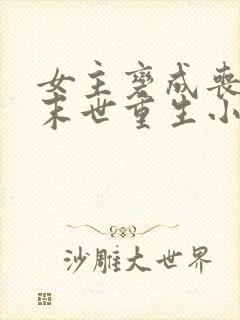 女主变成丧
末世重生小
沙雕大世界